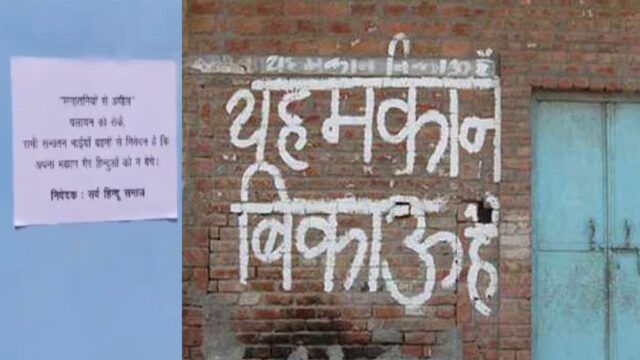 "सनातनियों से अपील"
पलायन को रोकें,
सभी सनातन भाईयों बहनों से निवेदन है कि
अपना मकान गैर हिन्दुओं को न बेचे।
निवेदक : सर्व हिन्दू समाज
यह मकान बिकाऊ है
यह मकान
बिकाऊ है